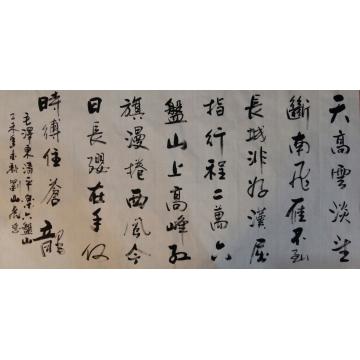 天高雲淡望
斷南飛雁不到
長城非好漢屈
指行程二萬六
盤山上高峰紅
旗漫捲西風今
日長纓在手何
時縛住蒼龍
毛澤東清平樂六盤山
丁未年 劉山